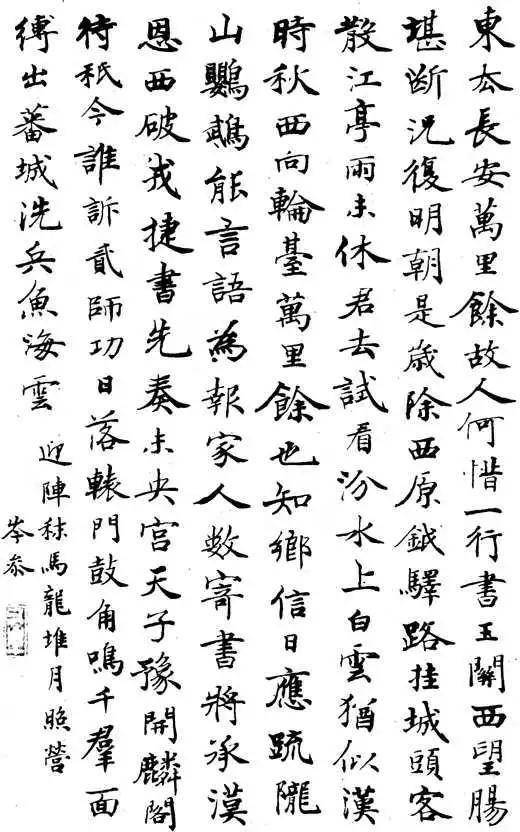 東去長安萬里餘故人何惜一行書玉關西望腸
堪断況復明朝是歳除西原鉞驛路挂城頭客
散江亭雨未休君去試看汾水上白雲猶似漢
時秋西向輪臺萬里餘也知鄉信日應疏隴
山鸚鵡能言語為報家人數寄書將承漠
恩西破戎捷書先奏未央宮天子豫開麟閣
待秖今誰訴貳師功日落轅門鼓角鳴千羣面
縛出蕃城洗兵魚海雲
迎陣秣馬龍堆月照營
岑參